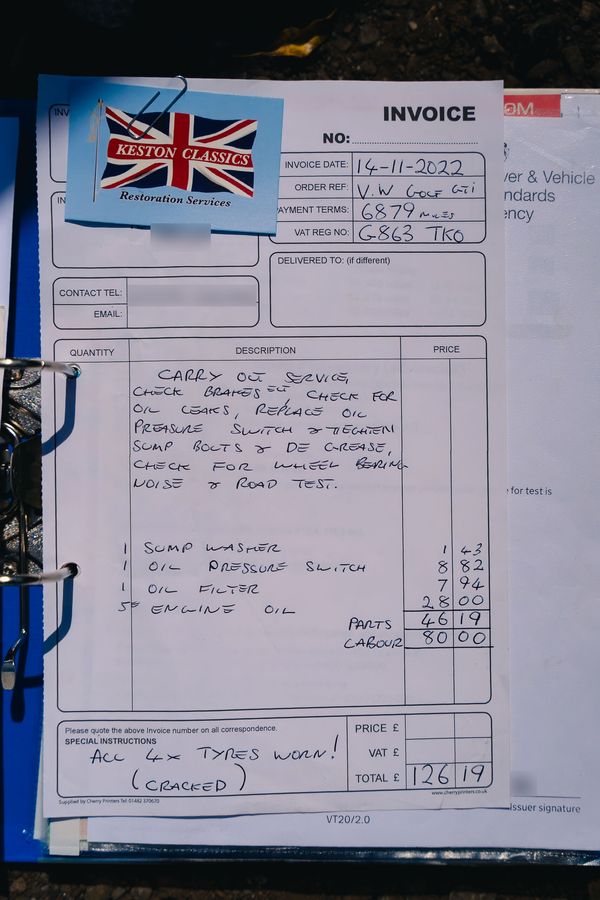 INVOICE
NO:
KESTON CLASSICS
Restoration Services
INVOICE DATE: 14-11-2022
ORDER REF: V.W GOLF GTi
PAYMENT TERMS: 6879 MILES
VAT REG NO: G863 TKO
DELIVERED TO: (if different)
CONTACT TEL:
EMAIL:
QUANTITY DESCRIPTION PRICE
CARRY OUT SERVICE,
CHECK BRAKES ECT, CHECK FOR
OIL LEAKS, REPLACE OIL
PREASURE SWITCH & TIEGHTEN
SUMP BOLTS & DE GREASE,
CHECK FOR WHEEL BERING
NOISE & ROAD TEST.
1 SUMP WASHER 1 43
1 OIL PRESSURE SWITCH 8 82
1 OIL FILTER 7 94
5 ENGINE OIL 28 00
PARTS 46 19
LABOUR 80 00
Please quote the above Invoice number on all correspondence.
SPECIAL INSTRUCTIONS
ALL 4x TYRES WORN!
(CRACKED)
PRICE £
VAT £
TOTAL £ 126 19
Supplied by Cherry Printers Tel: 01482 370670
www.cherryprinters.co.uk
OM
er & Vehicle
ndards
ency
for test is
Issuer signature
VT20/2.0